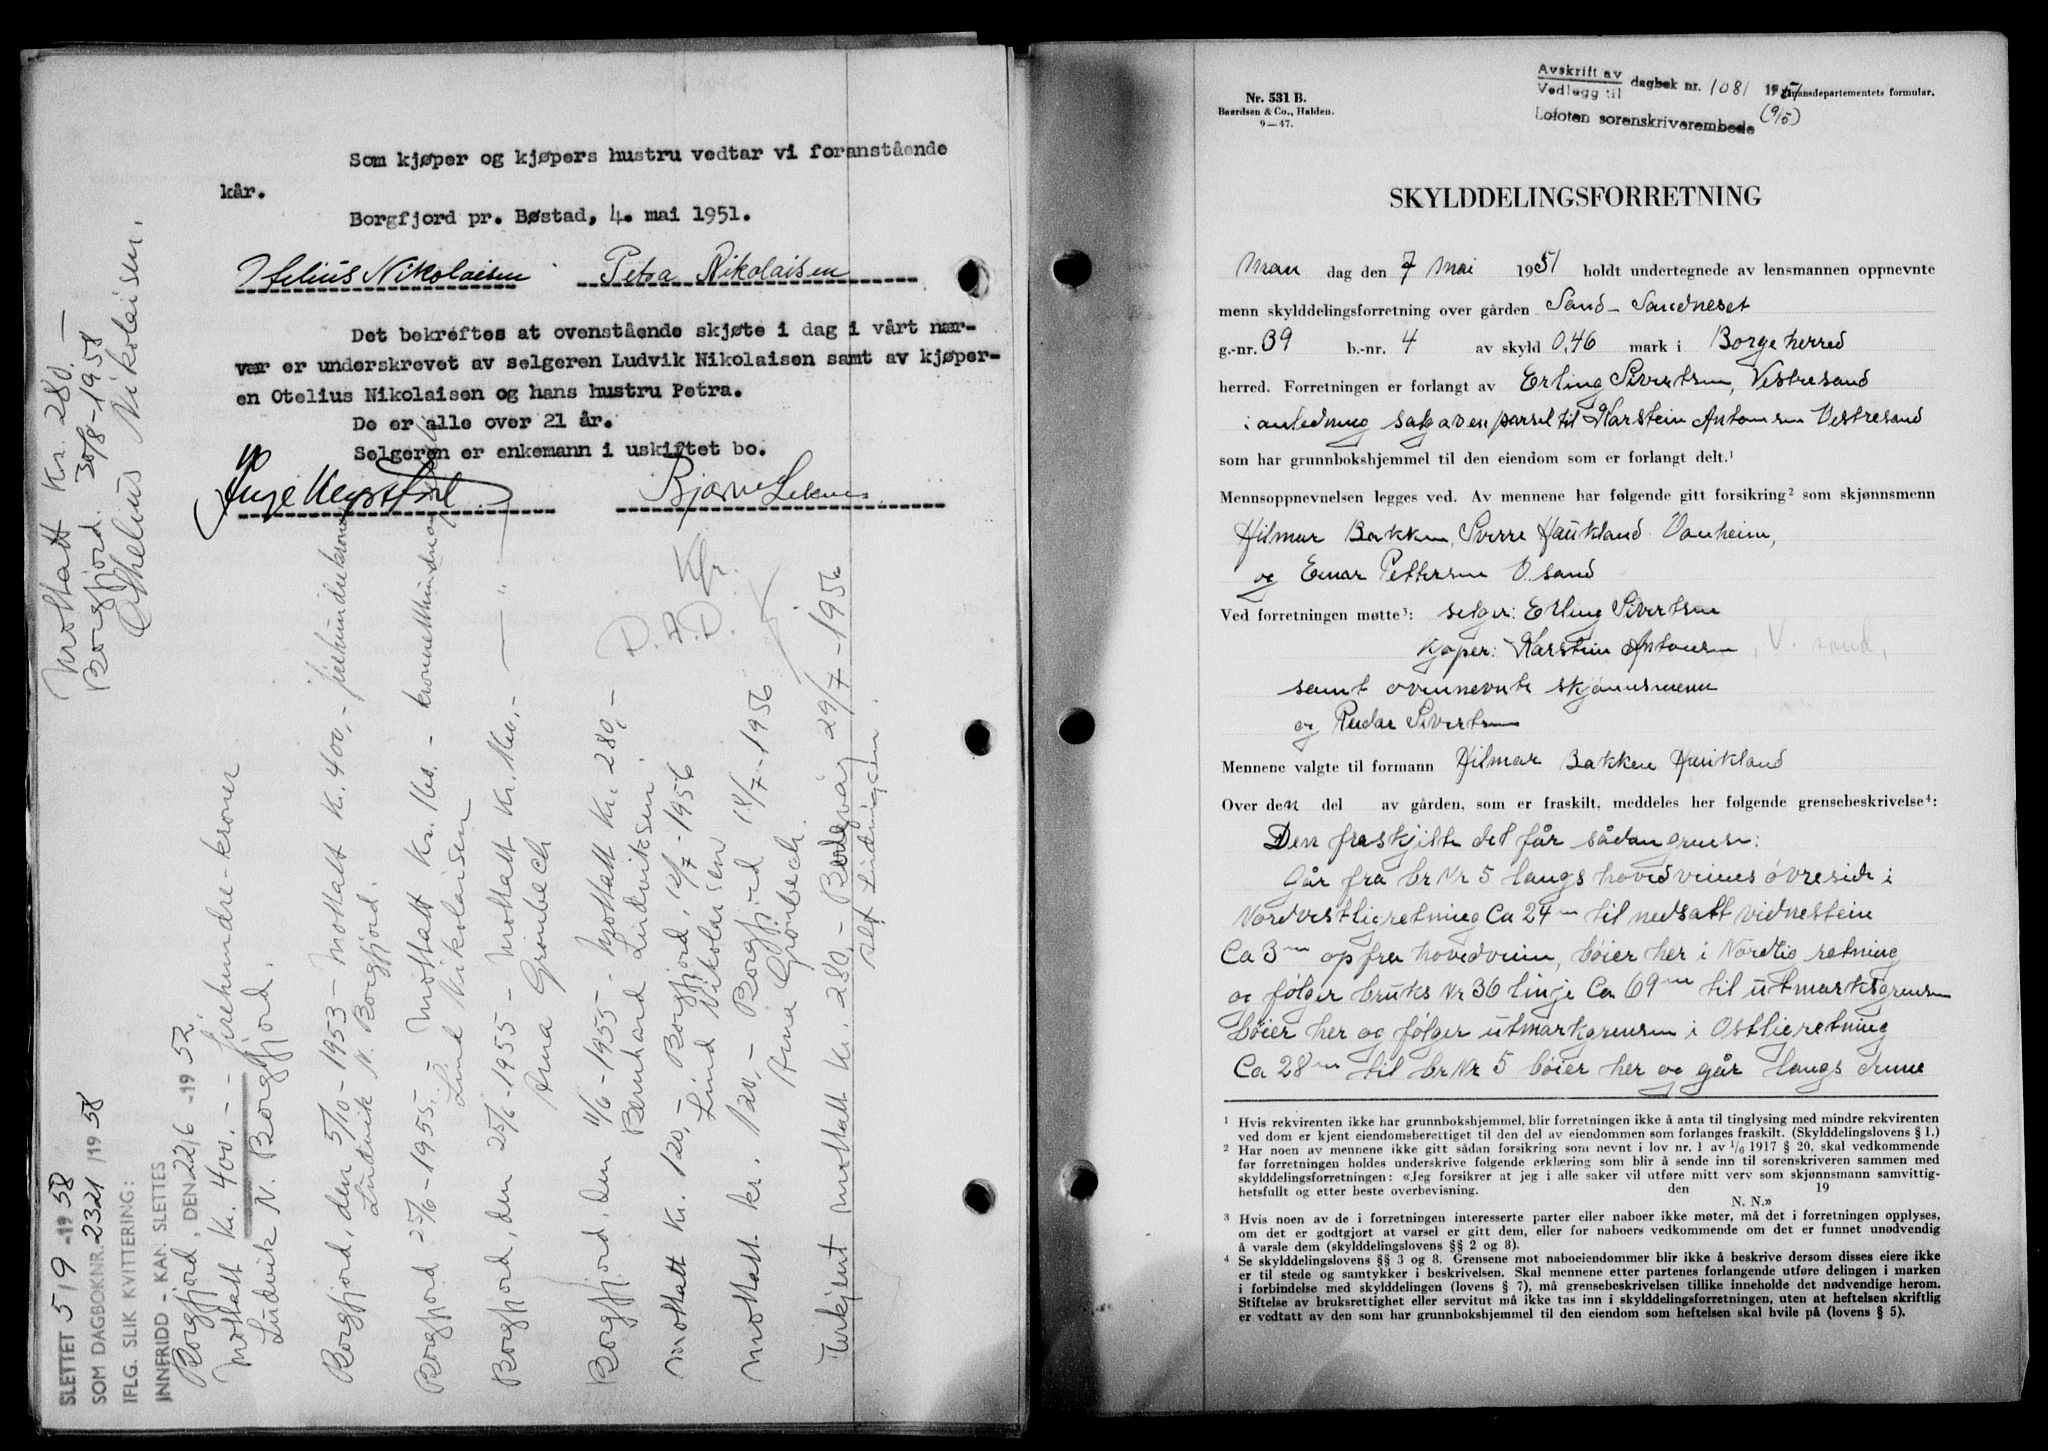 Som kjøper og kjøpers hustru vedtar vi foranstående
kår.
Borgfjord pr. Bøstad, 4. mai 1951.
Otelius Nikolaisen Petra Nikolaisen
Det bekreftes at ovenstående skjøte i dag i vårt nær-
vær er underskrevet av selgeren Ludvik Nikolaisen samt av kjøper-
en Otelius Nikolaisen og hans hustru Petra.
De er alle over 21 år.
Selgeren er enkemann i uskiftet bo.
Bjarne Leknes
Mottatt kr. 280.—
Borgfjord. 30/8-1958
Othelius Nikolaisen.
SLETTET 5/9 -1958
SOM DAGBOKNR. 2321/1958
IFLG. SLIK KVITTERING:
INNFRIDD - KAN SLETTES
Borgfjord, DEN 22/6 -1952.
Mottatt kr. 400.— firehundre-kroner
Ludvik N. Borgfjord.
Borgfjord, den 5/10-1953 - Mottatt kr. 400,- firehundrekroner
Ludvik N. Borgfjord.
Borgfjord 25/6-1955 - Mottatt kr. 160.-
Lind Nikolaisen
Borgfjord, den 25/6-1955 - Mottatt kr. 160,- — " —
Anna Grönbech
Borgfjord, den 11/6-1955 - Mottatt kr. 280,-
Bernhard Ludviksen.
Mottatt kr. 120,- Borgfjord, 12/7-1956
Lind Nikolaisen
Mottatt kr. 120,- Borgfjord 14/7-1956
Anna Grönbech.
mottatt kr. 280,- 29/7-1956
Alf Ludvigsen.
Nr. 531 B.
Baardsen & Co., Halden.
9—47.
Avskrift av
Vedlegg til dagbok nr. 1081 1951 Finansdepartementets formular.
Lofoten sorenskriverembede (9/5)
SKYLDDELINGSFORRETNING
Man dag den 7 mai 1951 holdt undertegnede av lensmannen oppnevnte
menn skylddelingsforretning over gården Sand - Sandneset
g.-nr. 39 b.-nr. 4 av skyld 0,46 mark i Borge herred
herred. Forretningen er forlangt av Erling Sivertsen, Vestresand
i anledning salg av en parsel til Karstein Antonsen Vestresand
som har grunnbokshjemmel til den eiendom som er forlangt delt.¹
Mennsoppnevnelsen legges ved. Av mennene har følgende gitt forsikring² som skjønnsmenn
Hilmar Bakken, Sverre Haukland Vanheim,
og Einar Pettersen V. sand
Ved forretningen møtte³: selger: Erling Sivertsen
Kjøper: Karstein Antonsen, V. sand,
samt ovennevnte skjønnsmenn
og Peder Sivertsen
Mennene valgte til formann Hilmar Bakken Haukland
Over den del av gården, som er fraskilt, meddeles her følgende grensebeskrivelse⁴:
Den fraskjilte del får sådan grense:
Går fra br Nr 5 langs hovedveiens øvreside i
Nordvestligretning Ca 24 m til nedsatt vidnestein
Ca 3 m op fra hovedveien, bøier her i Nordlig retning
og følger bruks Nr 36 linje Ca 69 m til utmarksgrensen
bøier her og følger utmarkgrensen i Ostligretning
Ca 28 m til br Nr 5 bøier her og går langs denne
¹ Hvis rekvirenten ikke har grunnbokshjemmel, blir forretningen ikke å anta til tinglysing med mindre rekvirenten
ved dom er kjent eiendomsberettiget til den del av eiendommen som forlanges fraskilt. (Skylddelingslovens § 1.)
² Har noen av mennene ikke gitt sådan forsikring som nevnt i lov nr. 1 av 1/6 1917 § 20, skal vedkommende
før forretningen holdes underskrive følgende erklæring som blir å sende inn til sorenskriveren sammen med
skylddelingsforretningen: «Jeg forsikrer at jeg i alle saker vil utføre mitt verv som skjønnsmann samvittig-
hetsfullt og etter beste overbevisning. den 19
N. N.»
³ Hvis noen av de i forretningen interesserte parter eller naboer ikke møter, må det i forretningen opplyses,
om det er godtgjort at varsel er gitt dem, eller for naboers vedkommende om det er funnet unødvendig
å varsle dem (skylddelingslovens §§ 2 og 8).
⁴ Se skylddelingslovens §§ 3 og 8. Grensene mot naboeiendommer blir ikke å beskrive dersom disses eiere ikke
er til stede og samtykker i beskrivelsen. Skal mennene etter partenes forlangende utføre delingen i marken
i forbindelse med skylddelingen (lovens § 7), må grensebeskrivelsen tillike inneholde det nødvendige herom.
Stiftelse av bruksrettighet eller servitut må ikke tas inn i skylddelingsforretningen, uten at heftelsen skriftlig
er vedtatt av den som har grunnbokshjemmel til den eiendom som heftelsen skal hvile på (lovens § 5).